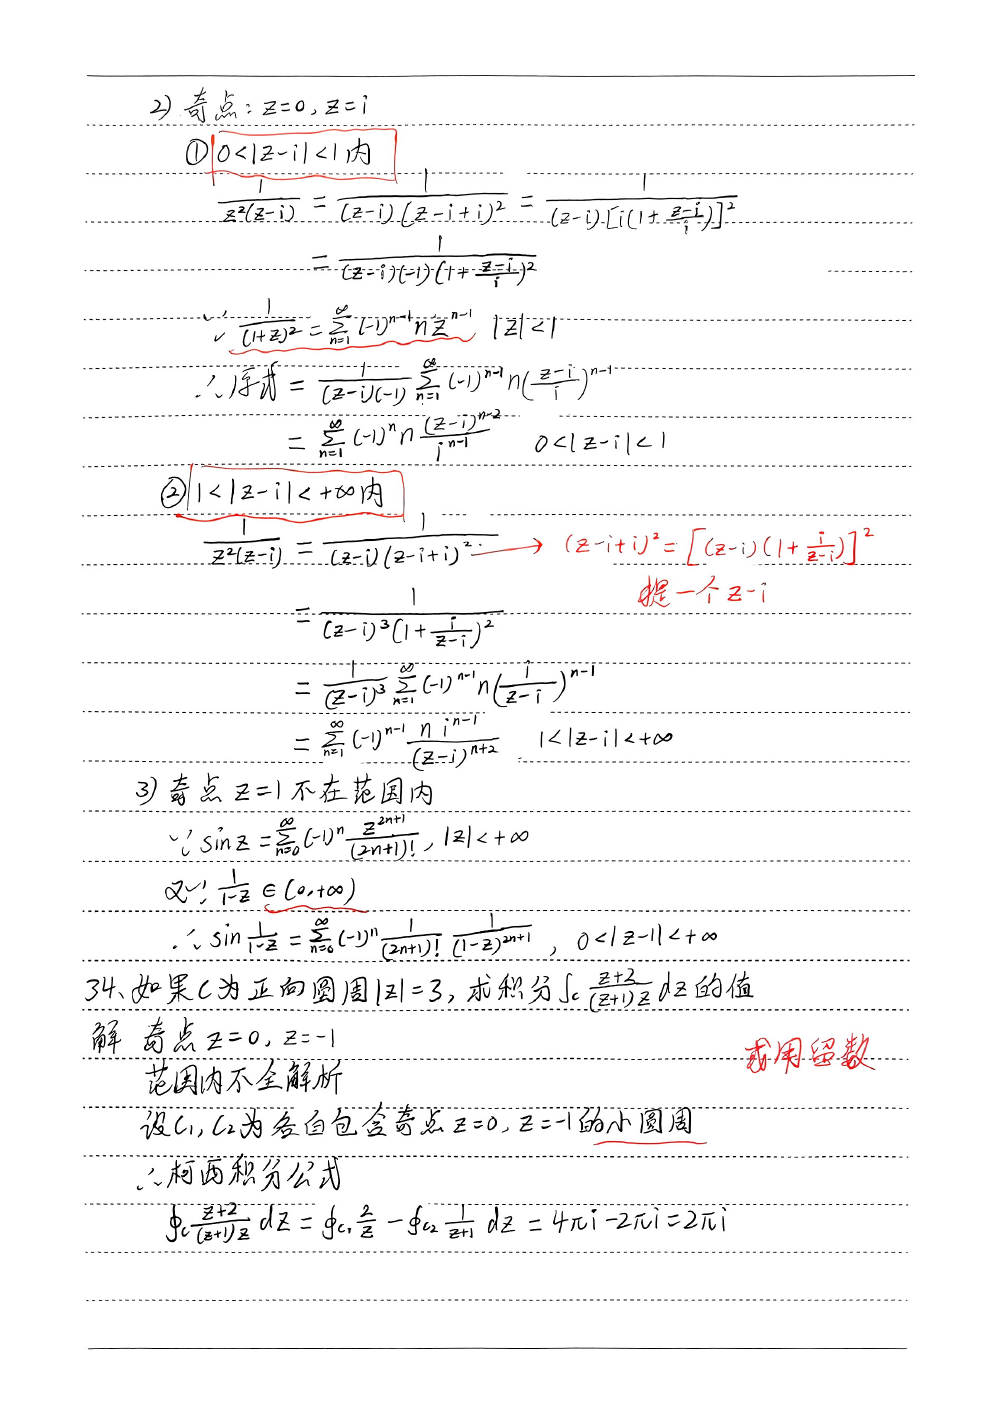 2) 奇点: z=0, z=i
① 0<|z-i|<1内
1/(z²(z-i)) = 1/((z-i)(z-i+i)²) = 1/((z-i)·[i(1+(z-i)/i)]²)
= 1/((z-i)(-1)(1+(z-i)/i)²)
∵ 1/(1+z)² = ∑_{n=1}^{∞} (-1)^{n-1} n z^{n-1} |z|<1
∴ 原式 = 1/((z-i)(-1)) ∑_{n=1}^{∞} (-1)^{n-1} n((z-i)/i)^{n-1}
= ∑_{n=1}^{∞} (-1)^n n (z-i)^{n-2}/i^{n-1} 0<|z-i|<1
② 1<|z-i|<+∞内
1/(z²(z-i)) = 1/((z-i)(z-i+i)²) → (z-i+i)² = [(z-i)(1+i/(z-i))]²
提一个z-i
= 1/((z-i)³(1+i/(z-i))²)
= 1/(z-i)³ ∑_{n=1}^{∞} (-1)^{n-1} n(i/(z-i))^{n-1}
= ∑_{n=1}^{∞} (-1)^{n-1} n i^{n-1}/(z-i)^{n+2} 1<|z-i|<+∞
3) 奇点 z=1不在范围内
∵ sinz = ∑_{n=0}^{∞} (-1)^n z^{2n+1}/(2n+1)!, |z|<+∞
又∵ 1/(1-z) ∈ (0,+∞)
∴ sin 1/(1-z) = ∑_{n=0}^{∞} (-1)^n 1/(2n+1)! 1/(1-z)^{2n+1}, 0<|z-1|<+∞
34、如果C为正向圆周|z|=3, 求积分∫_C (z+2)/((z+1)z) dz的值
解 奇点 z=0, z=-1
或用留数
范围内不全解析
设C₁, C₂为各自包含奇点z=0, z=-1的小圆周
∴柯西积分公式
∮_C (z+2)/((z+1)z) dz = ∮_{C₁} 2/z - ∮_{C₂} 1/(z+1) dz = 4πi-2πi=2πi